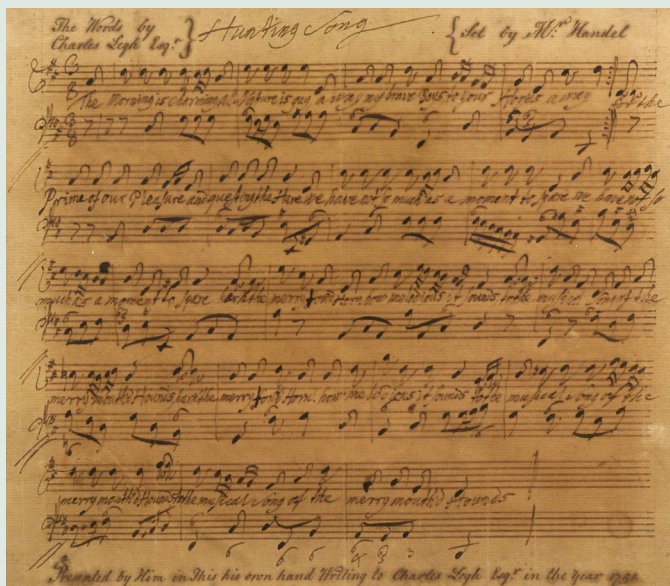 The Words by
Charles Legh Esqr.
Hunting Song
Set by Mr. Handel
The Morning is charming all Nature is gay away my brave Boys to your Horses away for the
Prime of our Pleasure and questing the Hare we have not so much as a moment to spare we have not so
much as a moment to spare hark the merry Horn how melodious it sounds to the musical song of the
merry mouth'd Hounds hark the merry Horn how melodious it sounds to the musical song of the
merry mouth'd Hounds to the musical song of the merry mouth'd Hounds
6 6 6
Presented by Him in This his own hand Writing to Charles Legh Esqr. in the Year